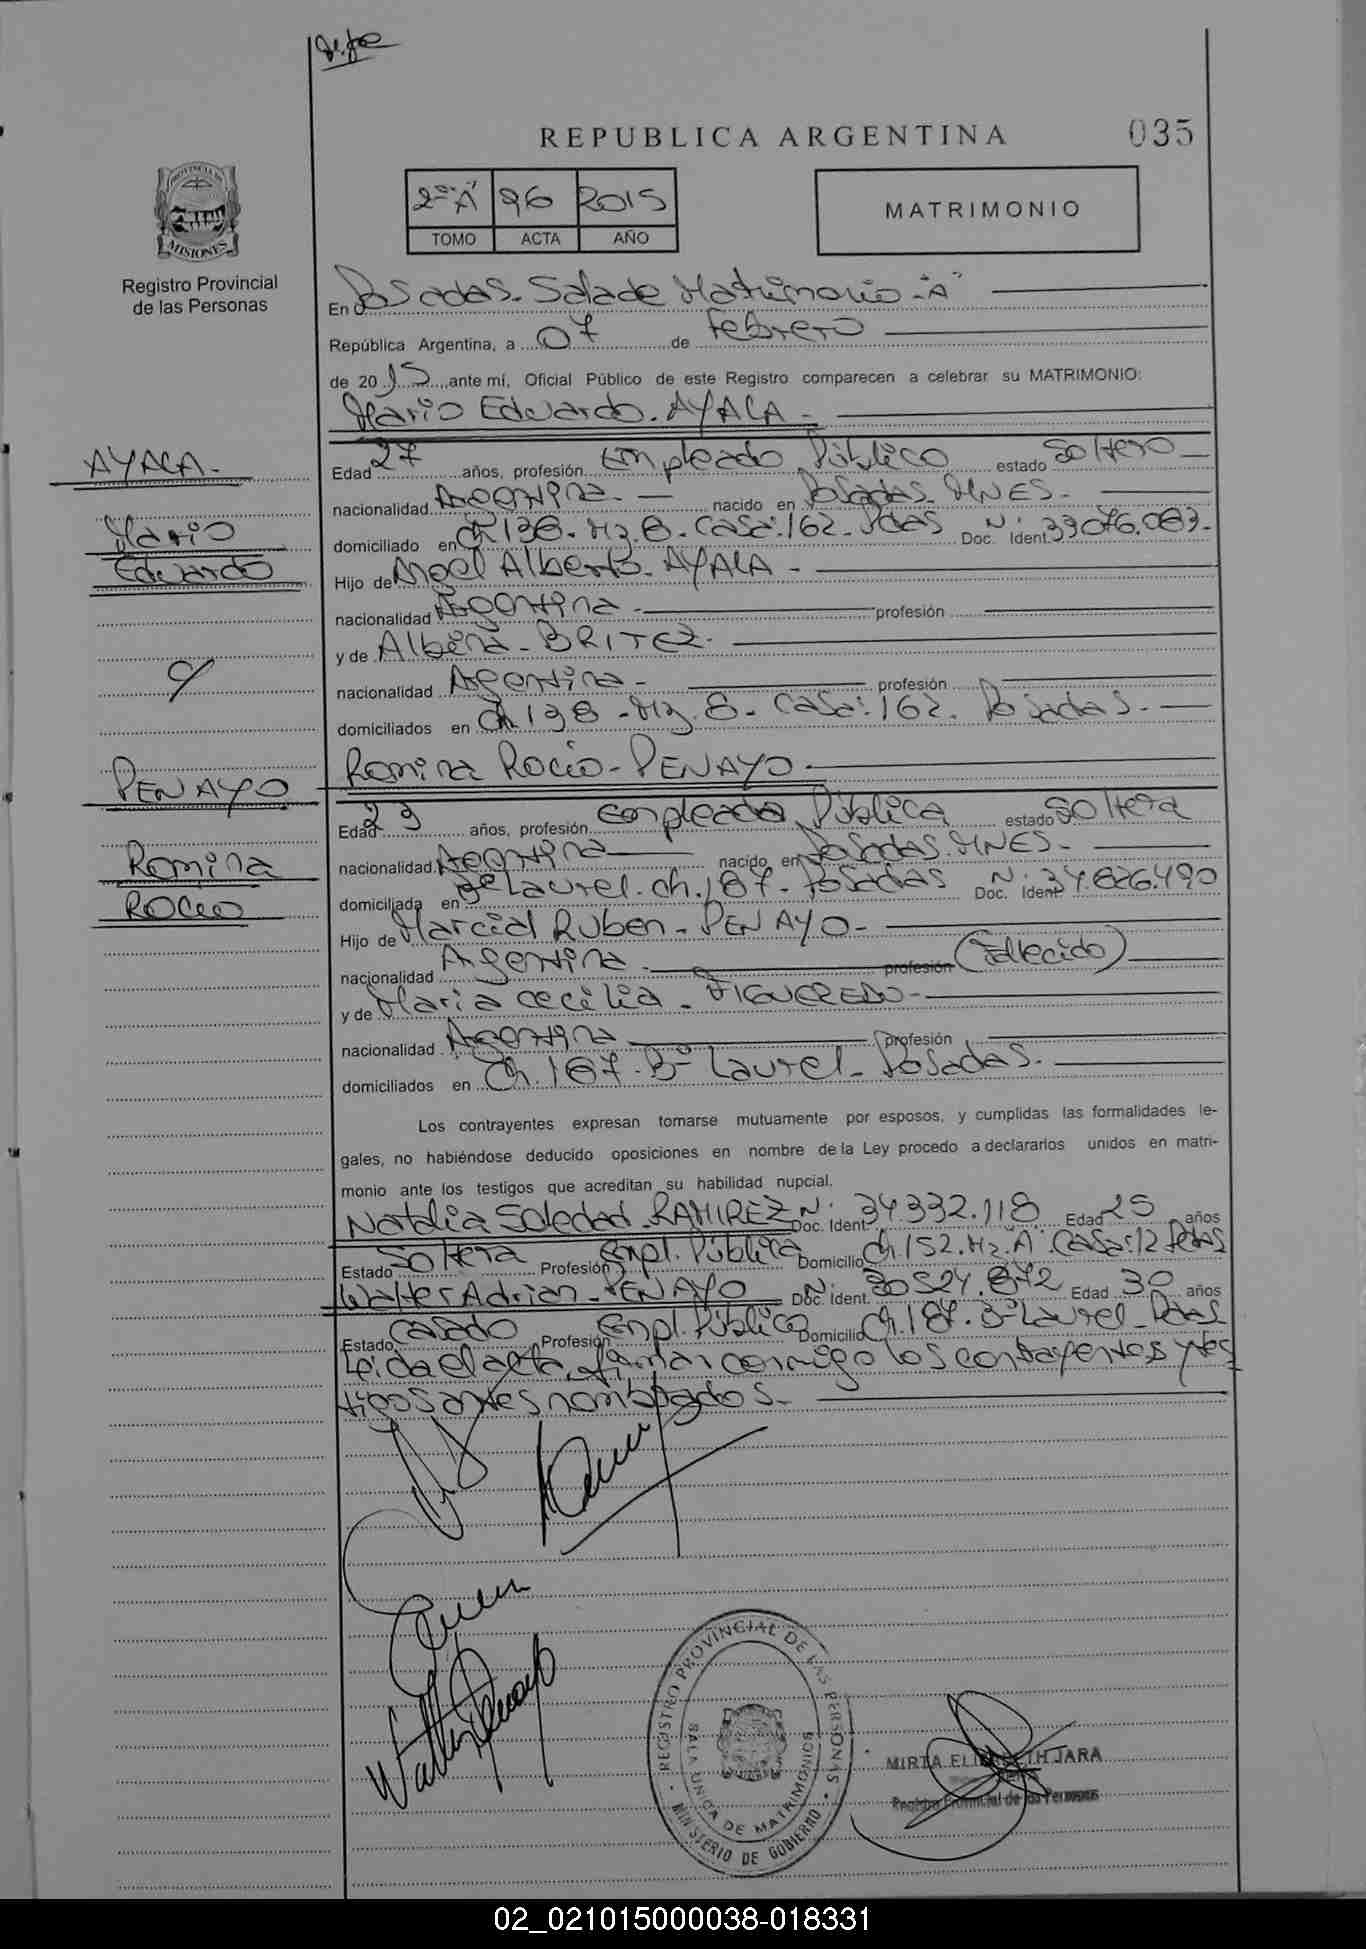 REPUBLICA ARGENTINA
035
2º "A" 96 2015
TOMO ACTA AÑO
MATRIMONIO
PROVINCIA DE
MISIONES
Registro Provincial
de las Personas
En Posadas. Sala de Matrimonio - "A"
República Argentina, a 07 de Febrero
de 2015, ante mí, Oficial Público de este Registro comparecen a celebrar su MATRIMONIO:
Mario Eduardo. AYALA -
AYALA -
Mario
Eduardo
c/
PENAYO
Romina
Rocio
Edad 27 años, profesión Empleado Público estado Soltero
nacionalidad Argentina. nacido en Posadas. MNES.
domiciliado en Ch 138. Mz. 8. Casa: 162. Pdas Doc. Ident. Nº 33.076.083.
Hijo de Angel Alberto. AYALA -
nacionalidad Argentina - profesión
y de Albina - BRITEZ.
nacionalidad Argentina - profesión
domiciliados en Ch. 138 - Mz. 8 - Casa: 162. Posadas.
Romina Rocio - PENAYO.
Edad 23 años, profesión Empleada Pública estado Soltera
nacionalidad Argentina nacido en Posadas. MNES.
domiciliada en Bº Laurel. Ch. 187. Posadas Doc. Ident. Nº 34.826.490
Hijo de Marcial Ruben - PENAYO -
nacionalidad Argentina. profesión (Fallecido)
y de Maria Cecilia - FIGUEREDO -
nacionalidad Argentina profesión
domiciliados en Ch. 187. Bº Laurel - Posadas.
Los contrayentes expresan tomarse mutuamente por esposos, y cumplidas las formalidades le-
gales, no habiéndose deducido oposiciones en nombre de la Ley procedo a declararlos unidos en matri-
monio ante los testigos que acreditan su habilidad nupcial.
Natalia Soledad. RAMIREZ Doc. Ident. Nº 34.332.118 Edad 25 años
Estado Soltera Profesión Empl. Pública Domicilio Ch. 152. Mz. A. Casa: 12 Pdas
Walter Adrian - PENAYO Doc. Ident. Nº 30.524.872 Edad 30 años
Estado Casado Profesión Empl. Público Domicilio Ch. 187. Bº Laurel - Pdas
Leida el acta, firman conmigo los contrayentes y tes
tigos antes nombrados.
Walter Penayo
REGISTRO PROVINCIAL DE LAS PERSONAS
SALA UNICA DE MATRIMONIOS
MINISTERIO DE GOBIERNO
MIRTA ELIZABETH JARA
Registro Provincial de las Personas
02_021015000038-018331